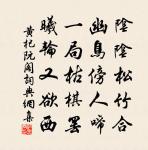 陰陰松竹合
幽鳥傍人啼
一局枯棋罷
曦輪又欲西
黃杞阮閣詞典網集